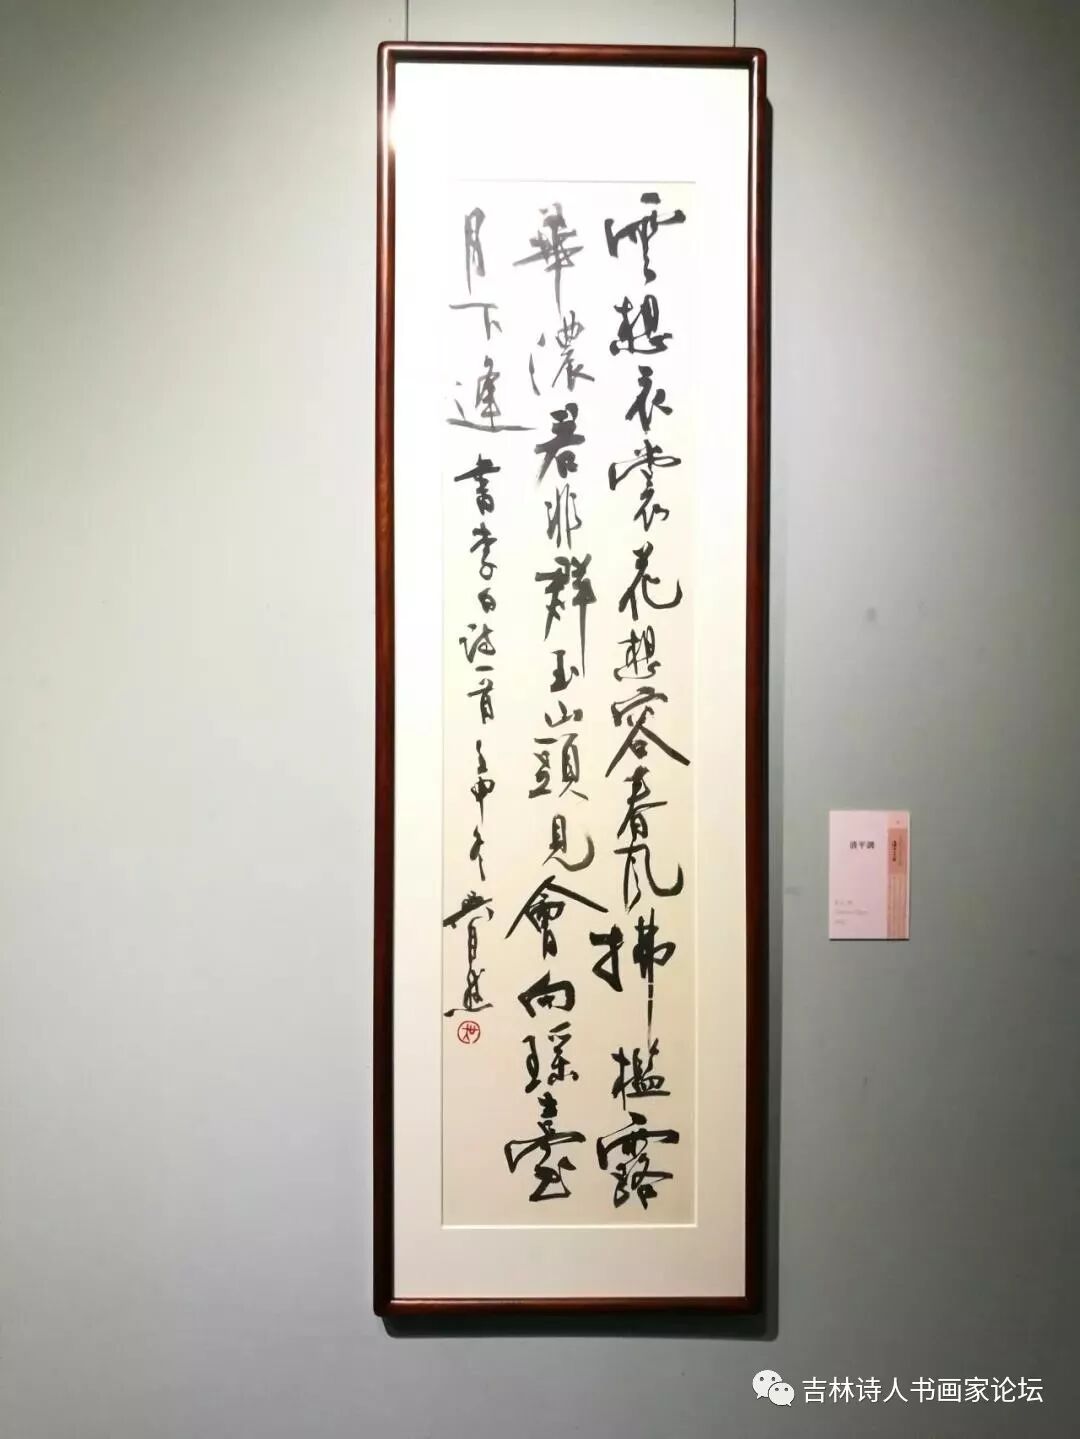 雲想衣裳花想容春風拂檻露
華濃若非群玉山頭見會向瑤臺
月下逢
書李白詩一首 壬申冬
清平調
吉林诗人书画家论坛